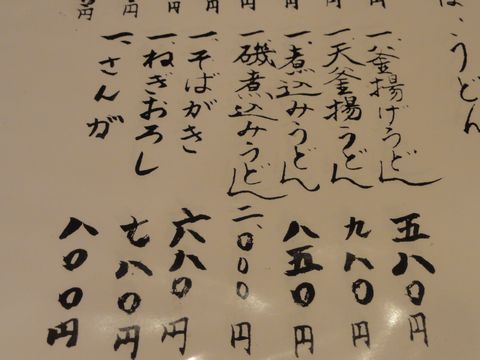 うどん
一、釜揚げうどん 五八〇円
一、天釜揚うどん 九八〇円
一、煮込みうどん 八五〇円
一、磯煮込みうどん 二、〇〇〇円
一、そばがき 六八〇円
一、ねぎおろし 七八〇円
一、さんが 八〇〇円
円
円
円
円
円
円
円